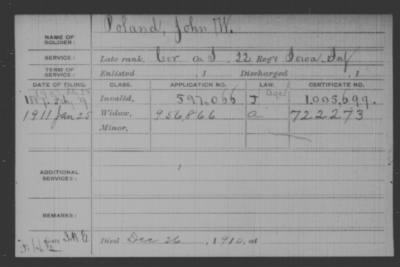 NAME OF SOLDIER: Poland, John W.
SERVICE: Late rank, Cor Co. I, 22 Reg't Iowa Inf
TERM OF SERVICE: Enlisted , 1 Discharged , 1
DATE OF FILING. CLASS. APPLICATION NO. LAW. CERTIFICATE NO.
Invalid, 597,066 J 1,005,699.
1911 Jan 25 Widow, 956,866 a 722273
Minor,
ADDITIONAL SERVICES:
REMARKS:
Died Dec 26 , 1910, at